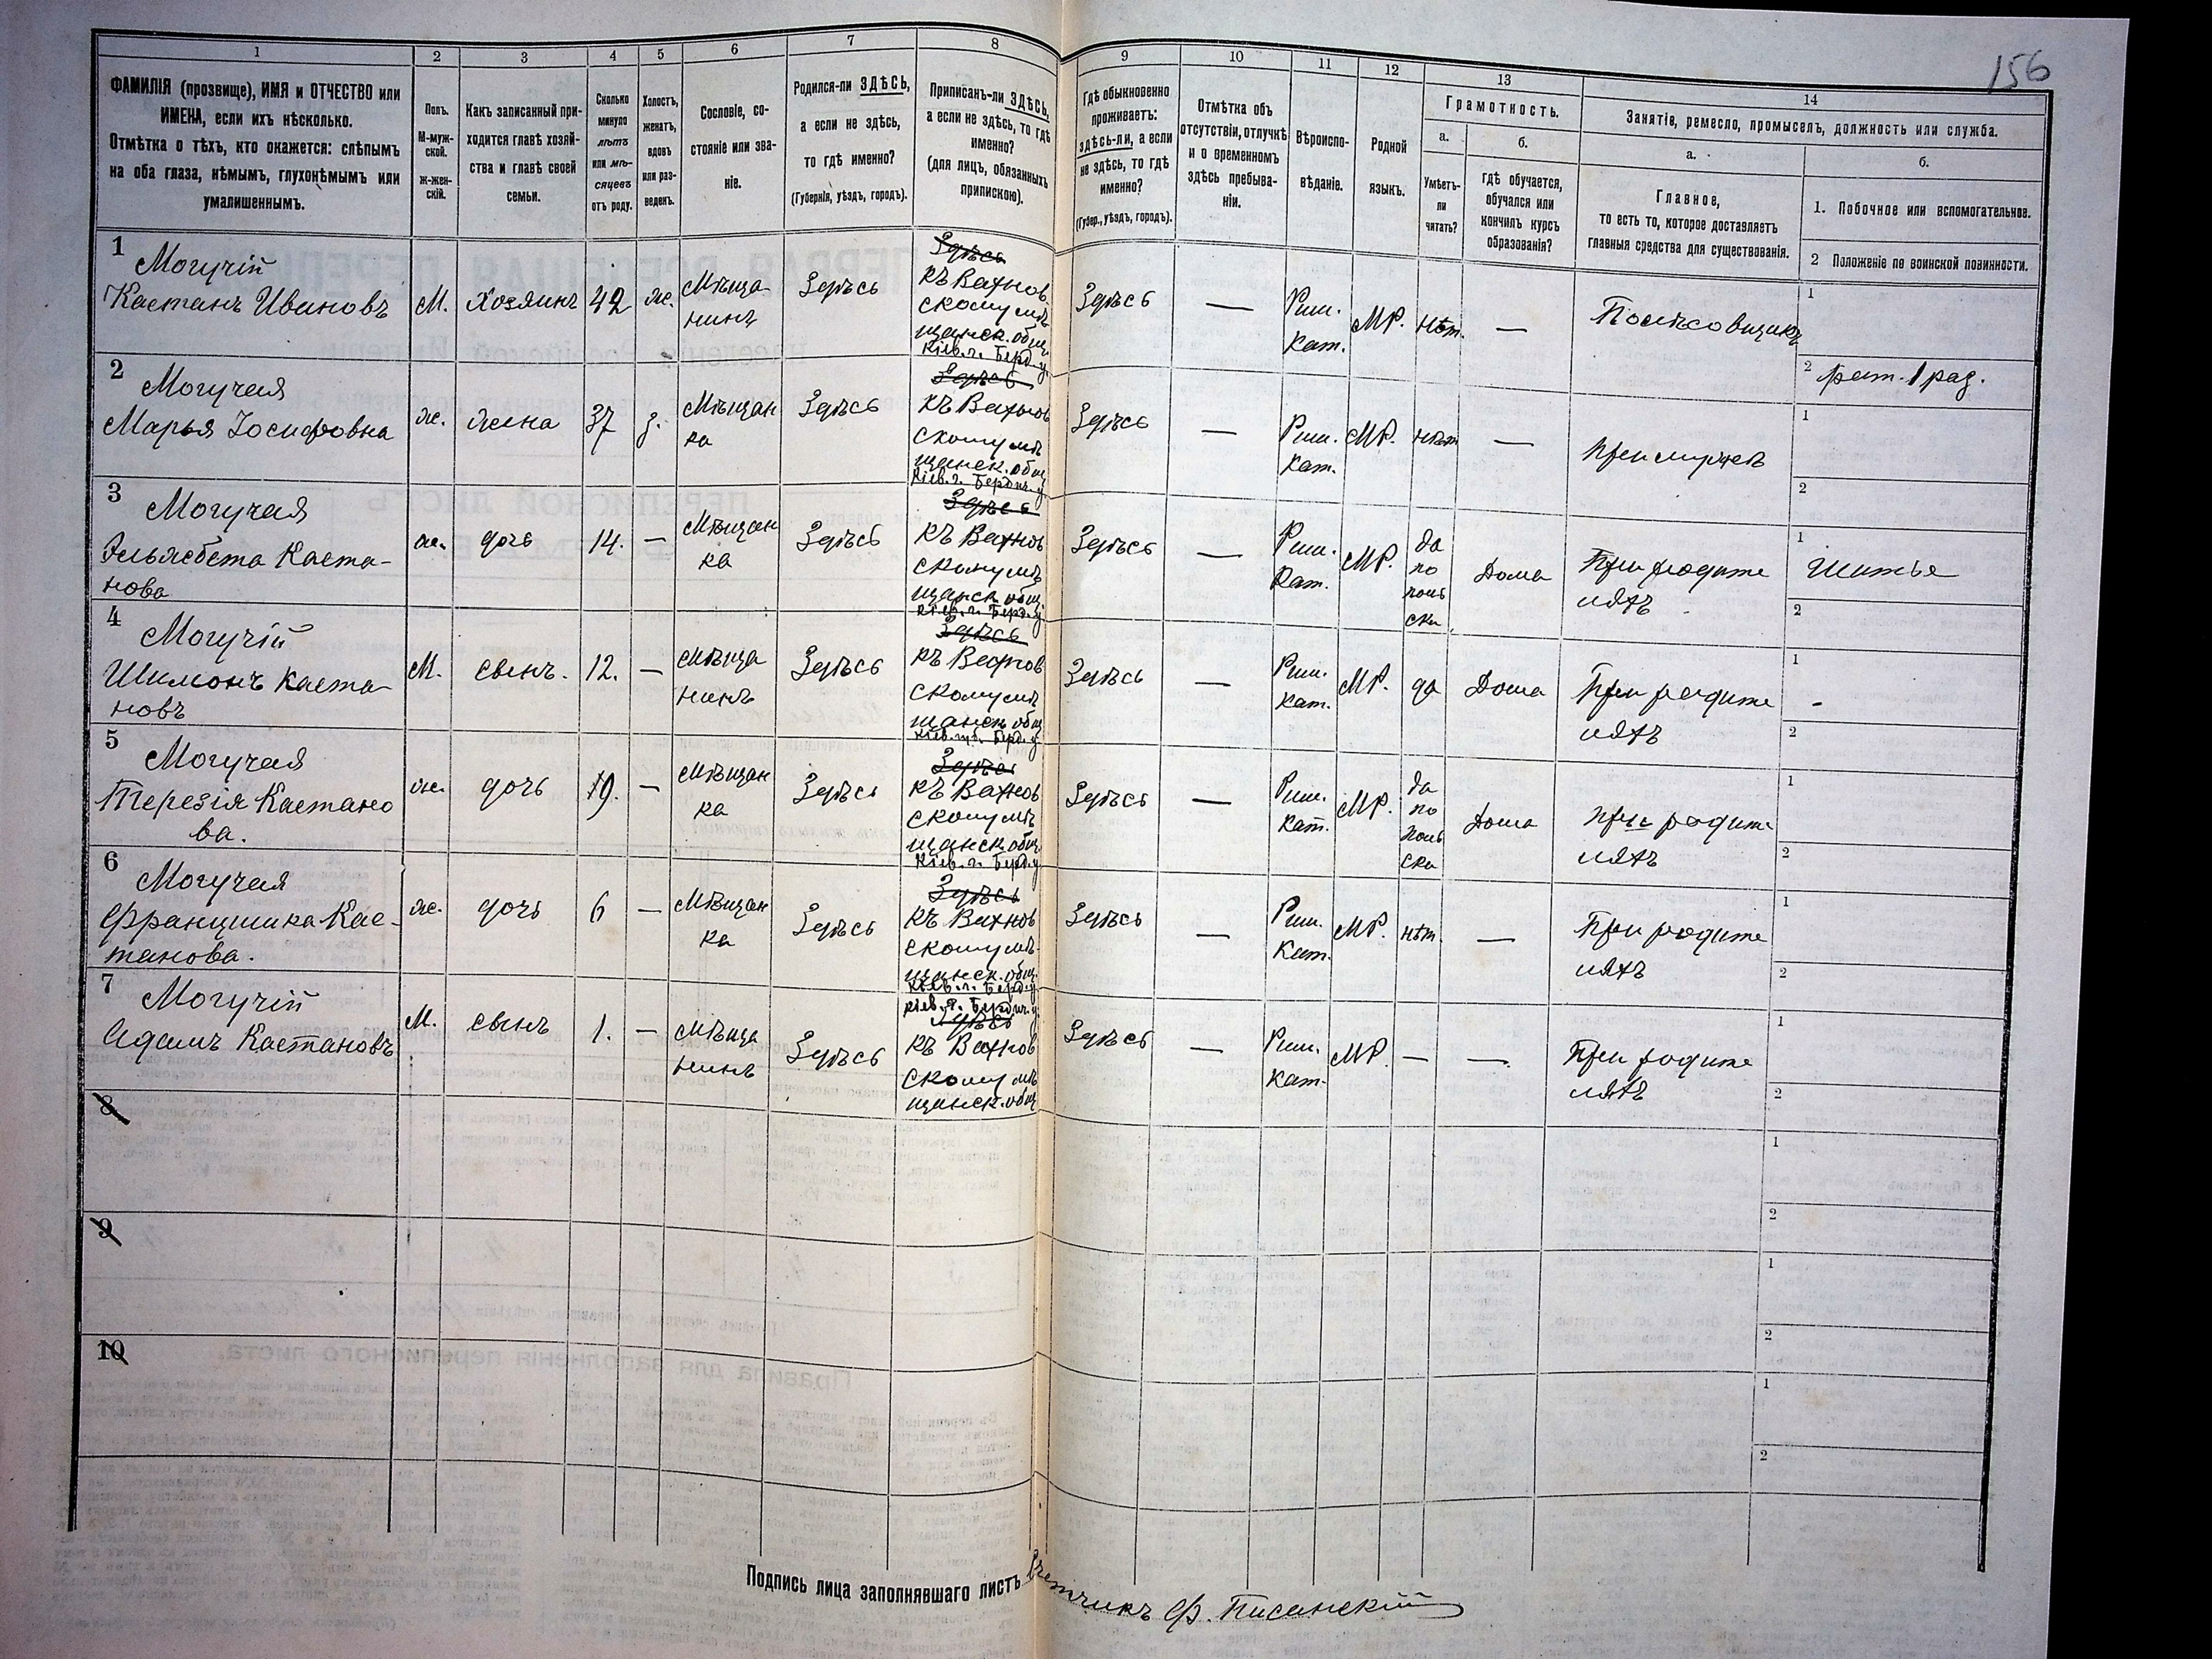 156
1 2 3 4 5 6 7 8 9 10 11 12 13 14
ФАМИЛІЯ (прозвище), ИМЯ и ОТЧЕСТВО или
ИМЕНА, если ихъ нѣсколько.
Отмѣтка о тѣхъ, кто окажется: слѣпымъ
на оба глаза, нѣмымъ, глухонѣмымъ или
умалишеннымъ.
Полъ.
М-муж-
ской.
ж-жен-
скій.
Какъ записанный при-
ходится главѣ хозяй-
ства и главѣ своей
семьи.
Сколько
минуло
лѣтъ
или мѣ-
сяцевъ
отъ роду.
Холостъ,
женатъ,
вдовъ
или раз-
веденъ.
Сословіе, со-
стояніе или зва-
ніе.
Родился-ли ЗДѢСЬ,
а если не здѣсь,
то гдѣ именно?
(Губернія, уѣздъ, городъ).
Приписанъ-ли ЗДѢСЬ,
а если не здѣсь, то гдѣ
именно?
(для лицъ, обязанныхъ
припискою).
Гдѣ обыкновенно
проживаетъ:
здѣсь-ли, а если
не здѣсь, то гдѣ
именно?
(Губер., уѣздъ, городъ).
Отмѣтка объ
отсутствіи, отлучкѣ
и о временномъ
здѣсь пребыва-
ніи.
Вѣроиспо-
вѣданіе.
Родной
языкъ.
Грамотность.
а.
Умѣетъ-
ли
читать?
б.
гдѣ обучается,
обучался или
кончилъ курсъ
образованія?
Занятіе, ремесло, промыселъ, должность или служба.
а.
Главное,
то есть то, которое доставляетъ
главныя средства для существованія.
б.
1. Побочное или вспомогательное.
2 Положеніе по воинской повинности.
1
Могучій
Каетанъ Ивановъ
М.
Хозяинъ
42
ж.
Мѣща-
нинъ
Здѣсь
Здѣсь
къ Вахнов
скому мѣ
щанск. общ.
Кіев. г. Берд. у.
Здѣсь
—
Рим.
Кат.
МР.
нѣт.
—
Полѣсовщикъ
1
2 рат. 1 раз.
2
Могучая
Марья Іосифовна
ж.
жена
37
з.
Мѣщан
ка
Здѣсь
Здѣсь
къ Вахнов
скому мѣ
щанск. общ
Кіев. г. Бердич. у.
Здѣсь
—
Рим.
Кат.
МР.
нѣт
—
При мужѣ
1
2
3
Могучая
Эльжбета Каета-
нова
ж.
дочь
14.
—
Мѣщан
ка
Здѣсь
Здѣсь
къ Вахнов
скому мѣ
щанск общ.
Кіев. г. Берд. у.
Здѣсь
—
Рим.
Кат.
МР.
да
по
поль
ски
Дома
При родите
ляхъ
1 Шитье
2
4
Могучій
Шимонъ Каета-
новъ
М.
сынъ.
12.
—
Мѣща
нинъ
Здѣсь
Здѣсь
къ Вахнов
скому мѣ
щанск общ
Кіев. губ. Берд. у.
Здѣсь
—
Рим.
Кат.
МР.
да
Дома
При родите
ляхъ
1
-
2
5
Могучая
Терезія Каетано
ва.
ж.
дочь
9.
—
Мѣщан
ка
Здѣсь
Здѣсь
къ Вахнов
скому мѣ
щанск. общ.
Кіев. г. Берд. у.
Здѣсь
—
Рим.
Кат.
МР.
да
по
поль
ски
Дома
При родите
ляхъ
1
2
6
Могучая
Францишка Кае-
танова.
ж.
дочь
6
—
Мѣщан
ка
Здѣсь
Здѣсь
къ Вахнов
скому мѣ-
щанск. общ.
Кіев. г. Берд. у.
Здѣсь
—
Рим.
Кат.
МР.
нѣт
—
При родите
ляхъ
1
2
7
Могучій
Адамъ Каетановъ
М.
сынъ
1.
—
Мѣща
нинъ
Здѣсь
Кіев. г. Бердич. у.
Здѣсь
къ Вахнов
скому мѣ
щанск. общ
Здѣсь
—
Рим.
Кат.
МР.
—
—
При родите
ляхъ
1
2
8
1
2
9
1
2
10
1
2
Подпись лица заполнявшаго листъ Счетчикъ Ф. Писанскій